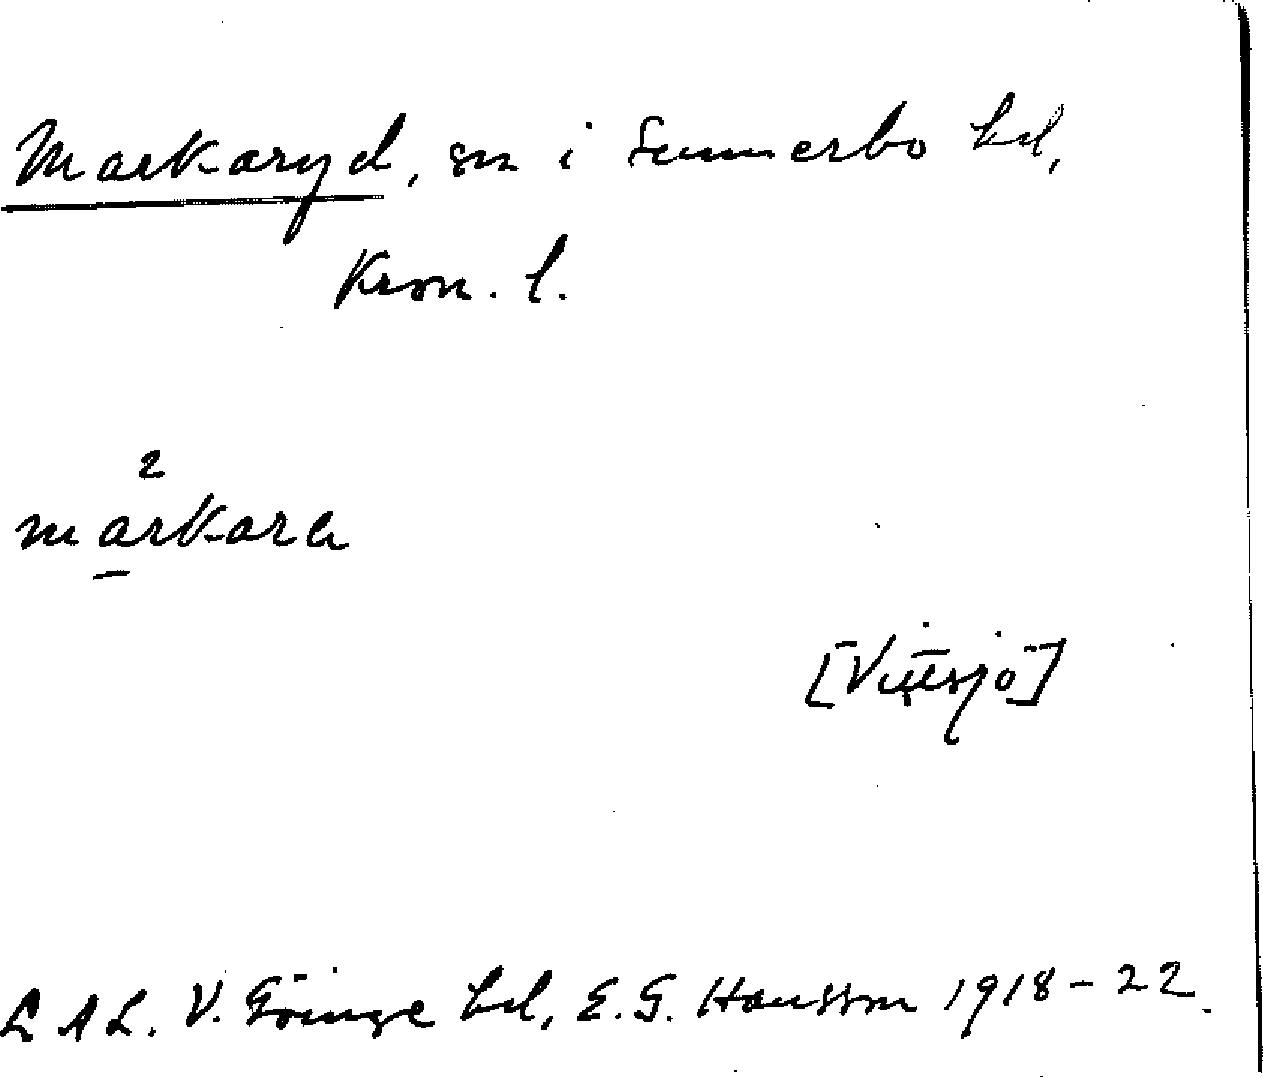 Markaryd, sn i Sunnerbo hd,
Kron. l.
2
markara
[Vittsjö]
LAL. V. Göinge hd, E. G. Hansson 1918-22.